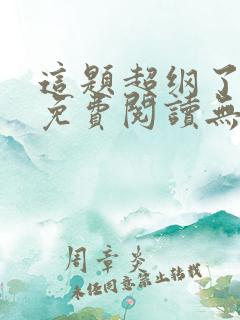 這題超纲了
免費閱讀無
周章炎
未经同意禁止转载